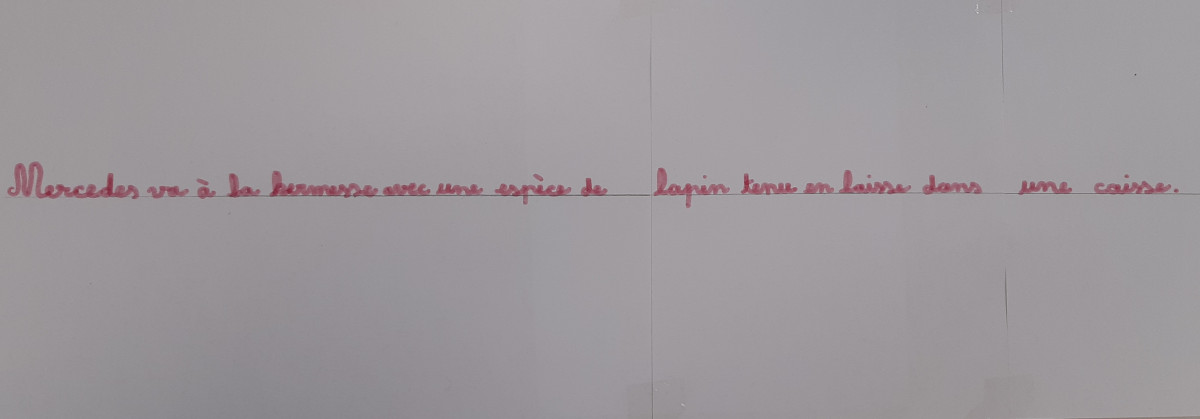 Mercedes va à la kermesse avec une espèce de lapin tenu en laisse dans une caisse.